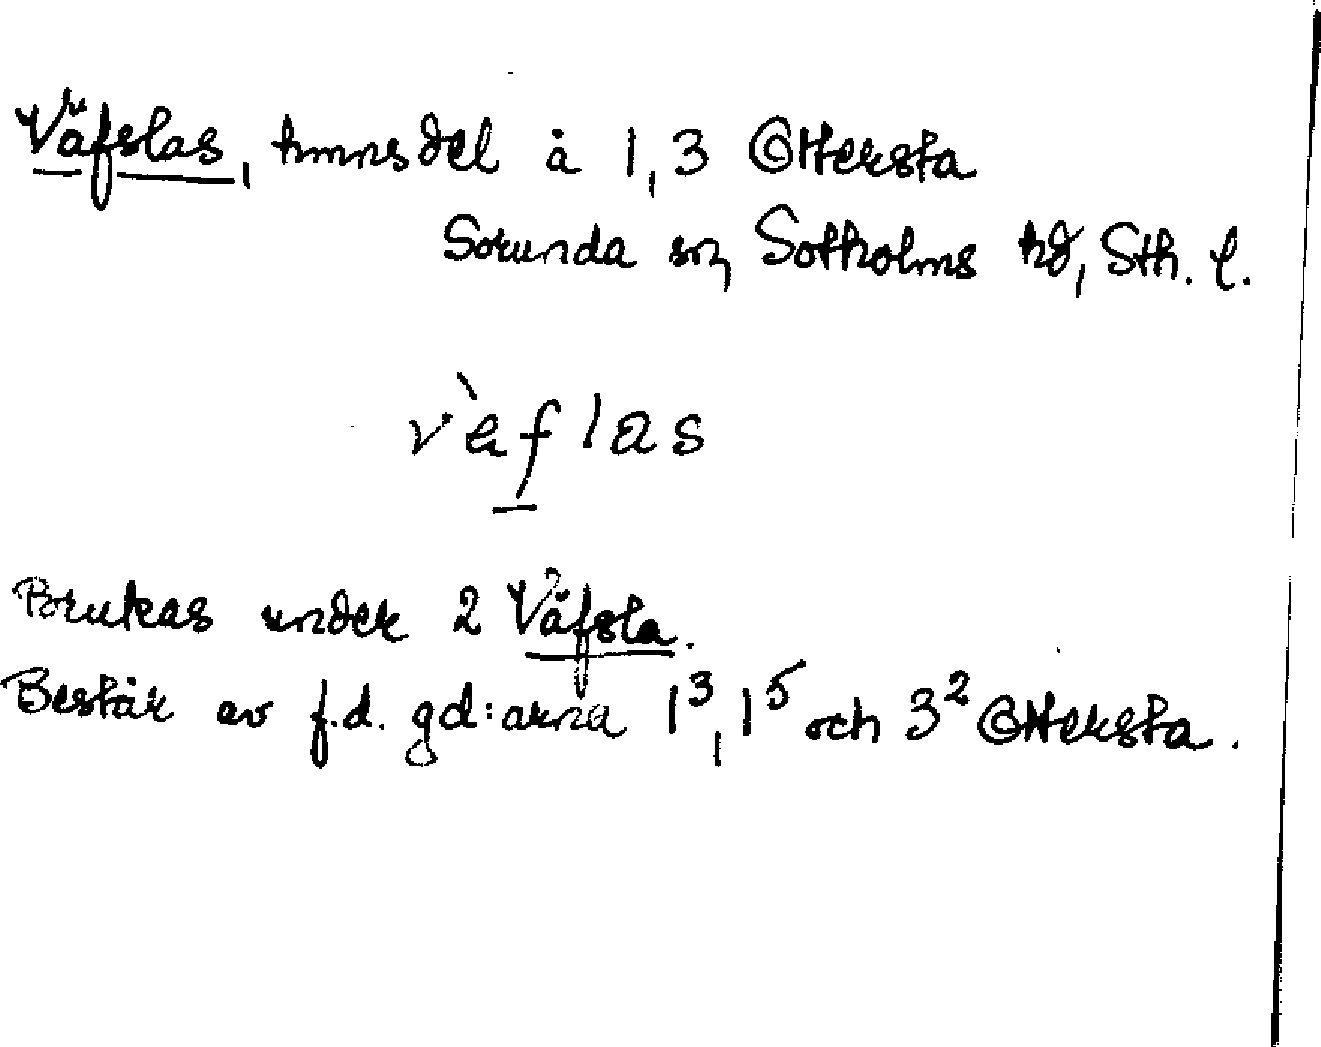 Väfslas, hmnsdel å 1, 3 Ottersta
Sorunda sn, Sotholms hd, Sth. l.
v`äflas
Brukas under 2 Väfsla.
Består av f.d. gd:arna 1³, 1⁵ och 3² Ottersta.